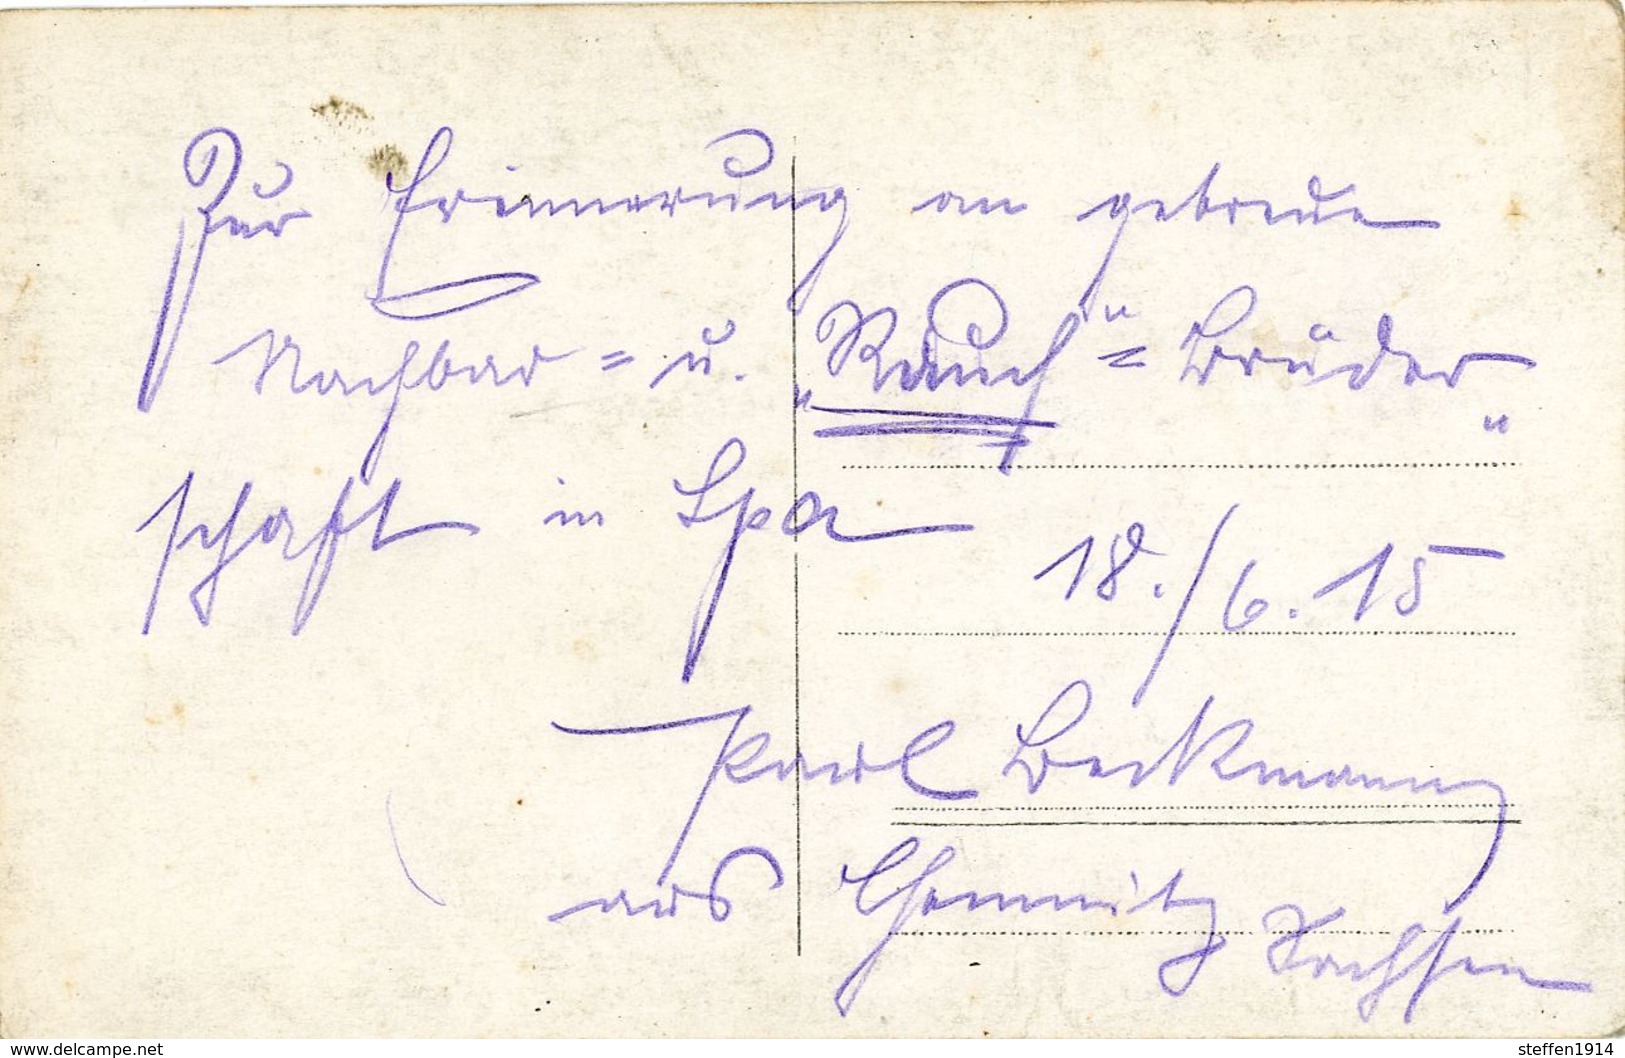 Zur Erinnerung an getreue
Nachbar= u. „Rauch"=Brüder
schaft" in Spa
18./6.15
Karl Beckmann
aus Chemnitz Sachsen
www.delcampe.net
steffen1914